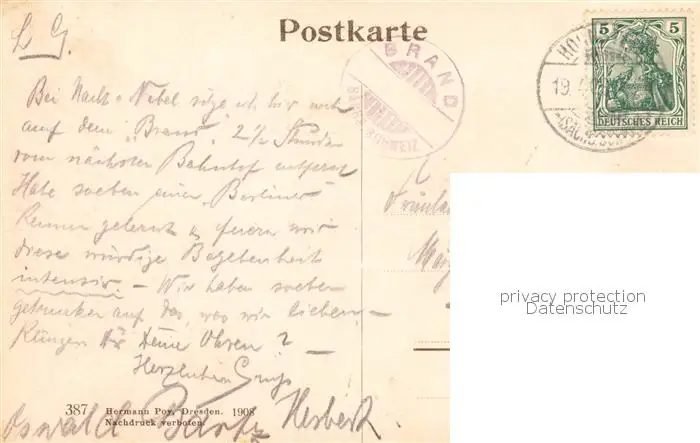 L G.
Postkarte
BRAND
SÄCHS. SCHWEIZ
5 5
DEUTSCHES REICH
19.
(SÄCHS.
Bei Nacht u Nebel sitze ich hier
auf dem "Brand", 2½ Stunden
vom nächsten Bahnhof entfernt
Habe soeben einen "Berliner"
kennen gelernt u feiern wir
diese würdige Begebenheit
intensiv – Wir haben soeben
getrunken auf das, was wir lieben –
Klingen Dir Deine Ohren? –
Herzlichen Gruß
Herbert.
Oswald
387
Hermann Poy, Dresden. 1908
Nachdruck verboten.
privacy protection
Datenschutz